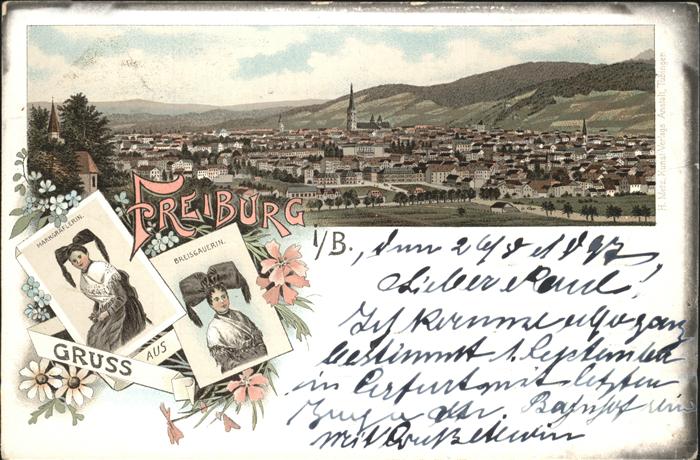 FREIBURG
i/B., den 26/8 1897
MARKGRÄFLERIN.
BREISGAUERIN.
GRUSS AUS
H. Metz, Kunst Verlags Anstalt, Tübingen
Lieber Paul!
Ich komme also ganz
bestimmt 1. September
in Erfurt mit letzten
Zuge Bahnhof
mit